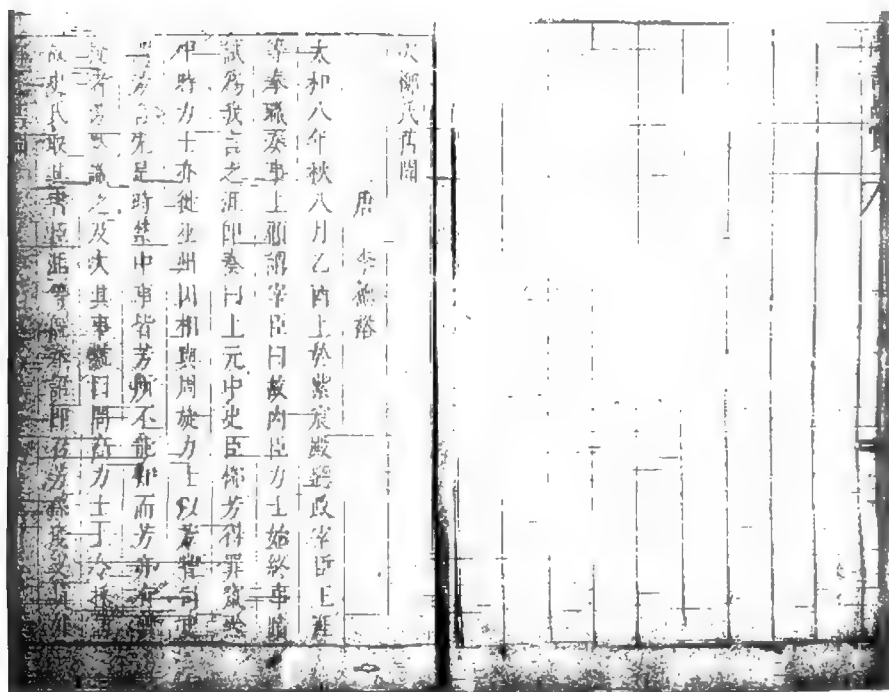 次柳氏舊聞
唐 李德裕
太和八年秋八月乙酉上於紫宸殿聽政宰臣王涯
等奉職奏事上顧謂宰臣曰故內臣力士始終事
試爲我言之涯卽奏曰上元中史臣柳芳得罪竄黔
中時力士亦徙巫州因相與周旋力士以芳嘗司史
爲芳言先是時禁中事皆芳所不能知而芳亦有
疑者芳默識之及次其事號曰問高力士
故史氏取其書臣涯等旣奉詔卽召芳孫度支員外